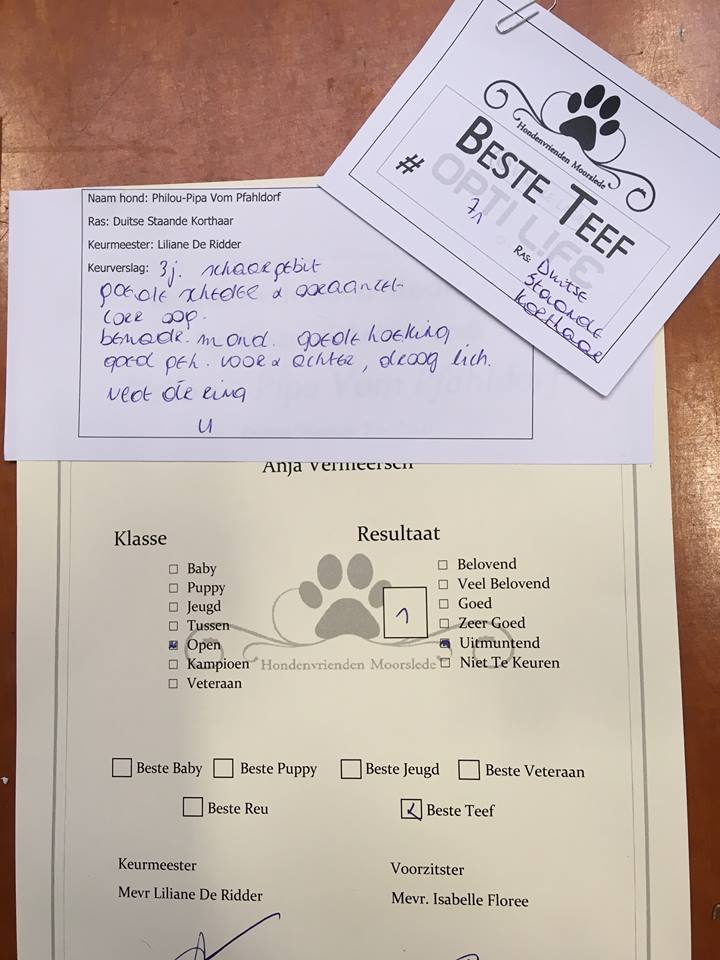 Hondenvrienden Moorslede
BESTE TEEF
#
OPTI LIFE
71
RAS: Duitse
Staande
Korthaar
Naam hond: Philou-Pipa Vom Pfahldorf
Ras: Duitse Staande Korthaar
Keurmeester: Liliane De Ridder
Keurverslag: 3j. schaargebit
goede schedel &
oor
mond. goede hoeking
goed geh. voor & achter, droog lich.
ring
U
Anja Vermeersch
Klasse
Baby
Puppy
Jeugd
Tussen
Open
Kampioen
Veteraan
Resultaat
Belovend
Veel Belovend
Goed
Zeer Goed
Uitmuntend
Niet Te Keuren
1
Hondenvrienden Moorslede
Beste Baby Beste Puppy Beste Jeugd Beste Veteraan
Beste Reu Beste Teef
Keurmeester
Mevr Liliane De Ridder
Voorzitster
Mevr. Isabelle Floree